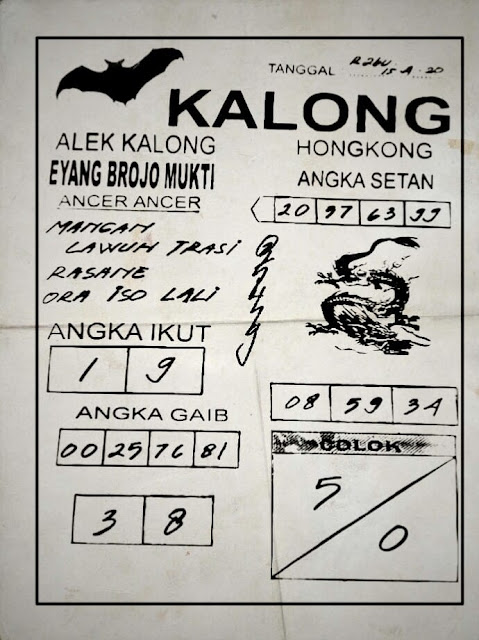 TANGGAL Rabu 15 . A . 20
KALONG
ALEK KALONG
EYANG BROJO MUKTI
ANCER ANCER
MANGAN
LAWUH TRASI
RASANE
ORA ISO LALI
HONGKONG
ANGKA SETAN
20 97 63 99
ANGKA IKUT
1 9
ANGKA GAIB
00 25 76 81
3 8
08 59 34
COLOK
5
0